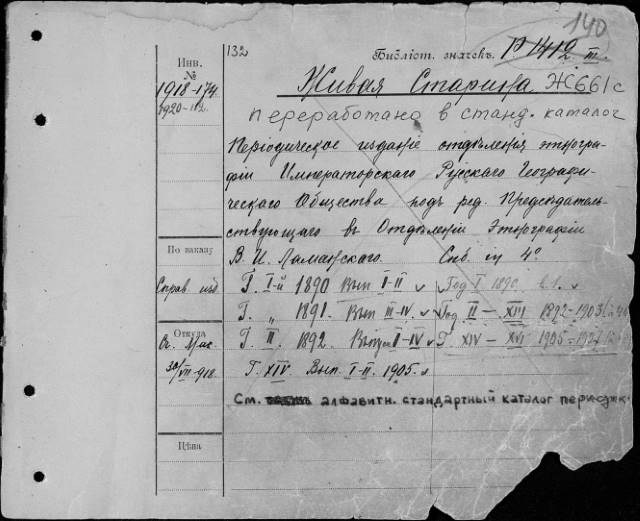 140
132
Библіот. значекъ. Р 1412 III.
Инв.
№
1918-174.
1920-
Живая Старина Ж661с
переработано в станд. каталог
Періодическое изданіе отдѣленія этногра-
фіи Императорскаго Русскаго Географи-
ческаго Общества подъ ред. Предсѣдатель-
ствующаго въ Отдѣленіи Этнографіи
В. И. Ламанскаго. Спб. 4°
По заказу
Справ. изд.
Г. I-й 1890 Вып I-II Год I 1890
Г. „ 1891. Вып III-IV. Год II - XIII 1892-1903
Откуда
Г. II. 1892. Выпуск I-IV Г XIV - XVI 1905-
30/VII-918.
Г. XIV. Вып. I-II. 1905.
См. алфавитн. стандартный каталог
Цѣна